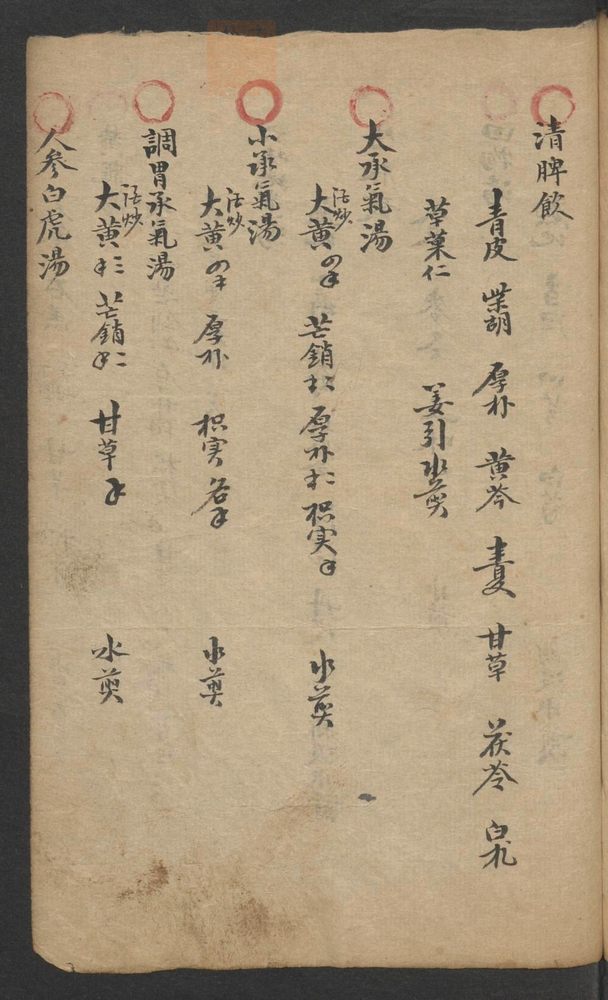 清脾飲
青皮 柴胡 厚朴 黄芩 夏 甘草 茯苓 白朮
草菓仁 姜引 水煎
大承氣湯
酒炒 大黄 芒銷 厚朴 枳実 水煎
小承氣湯
酒炒 大黄 厚朴 枳実 各 水煎
調胃承氣湯
酒炒 大黄 芒銷 甘草 水煎
人参白虎湯